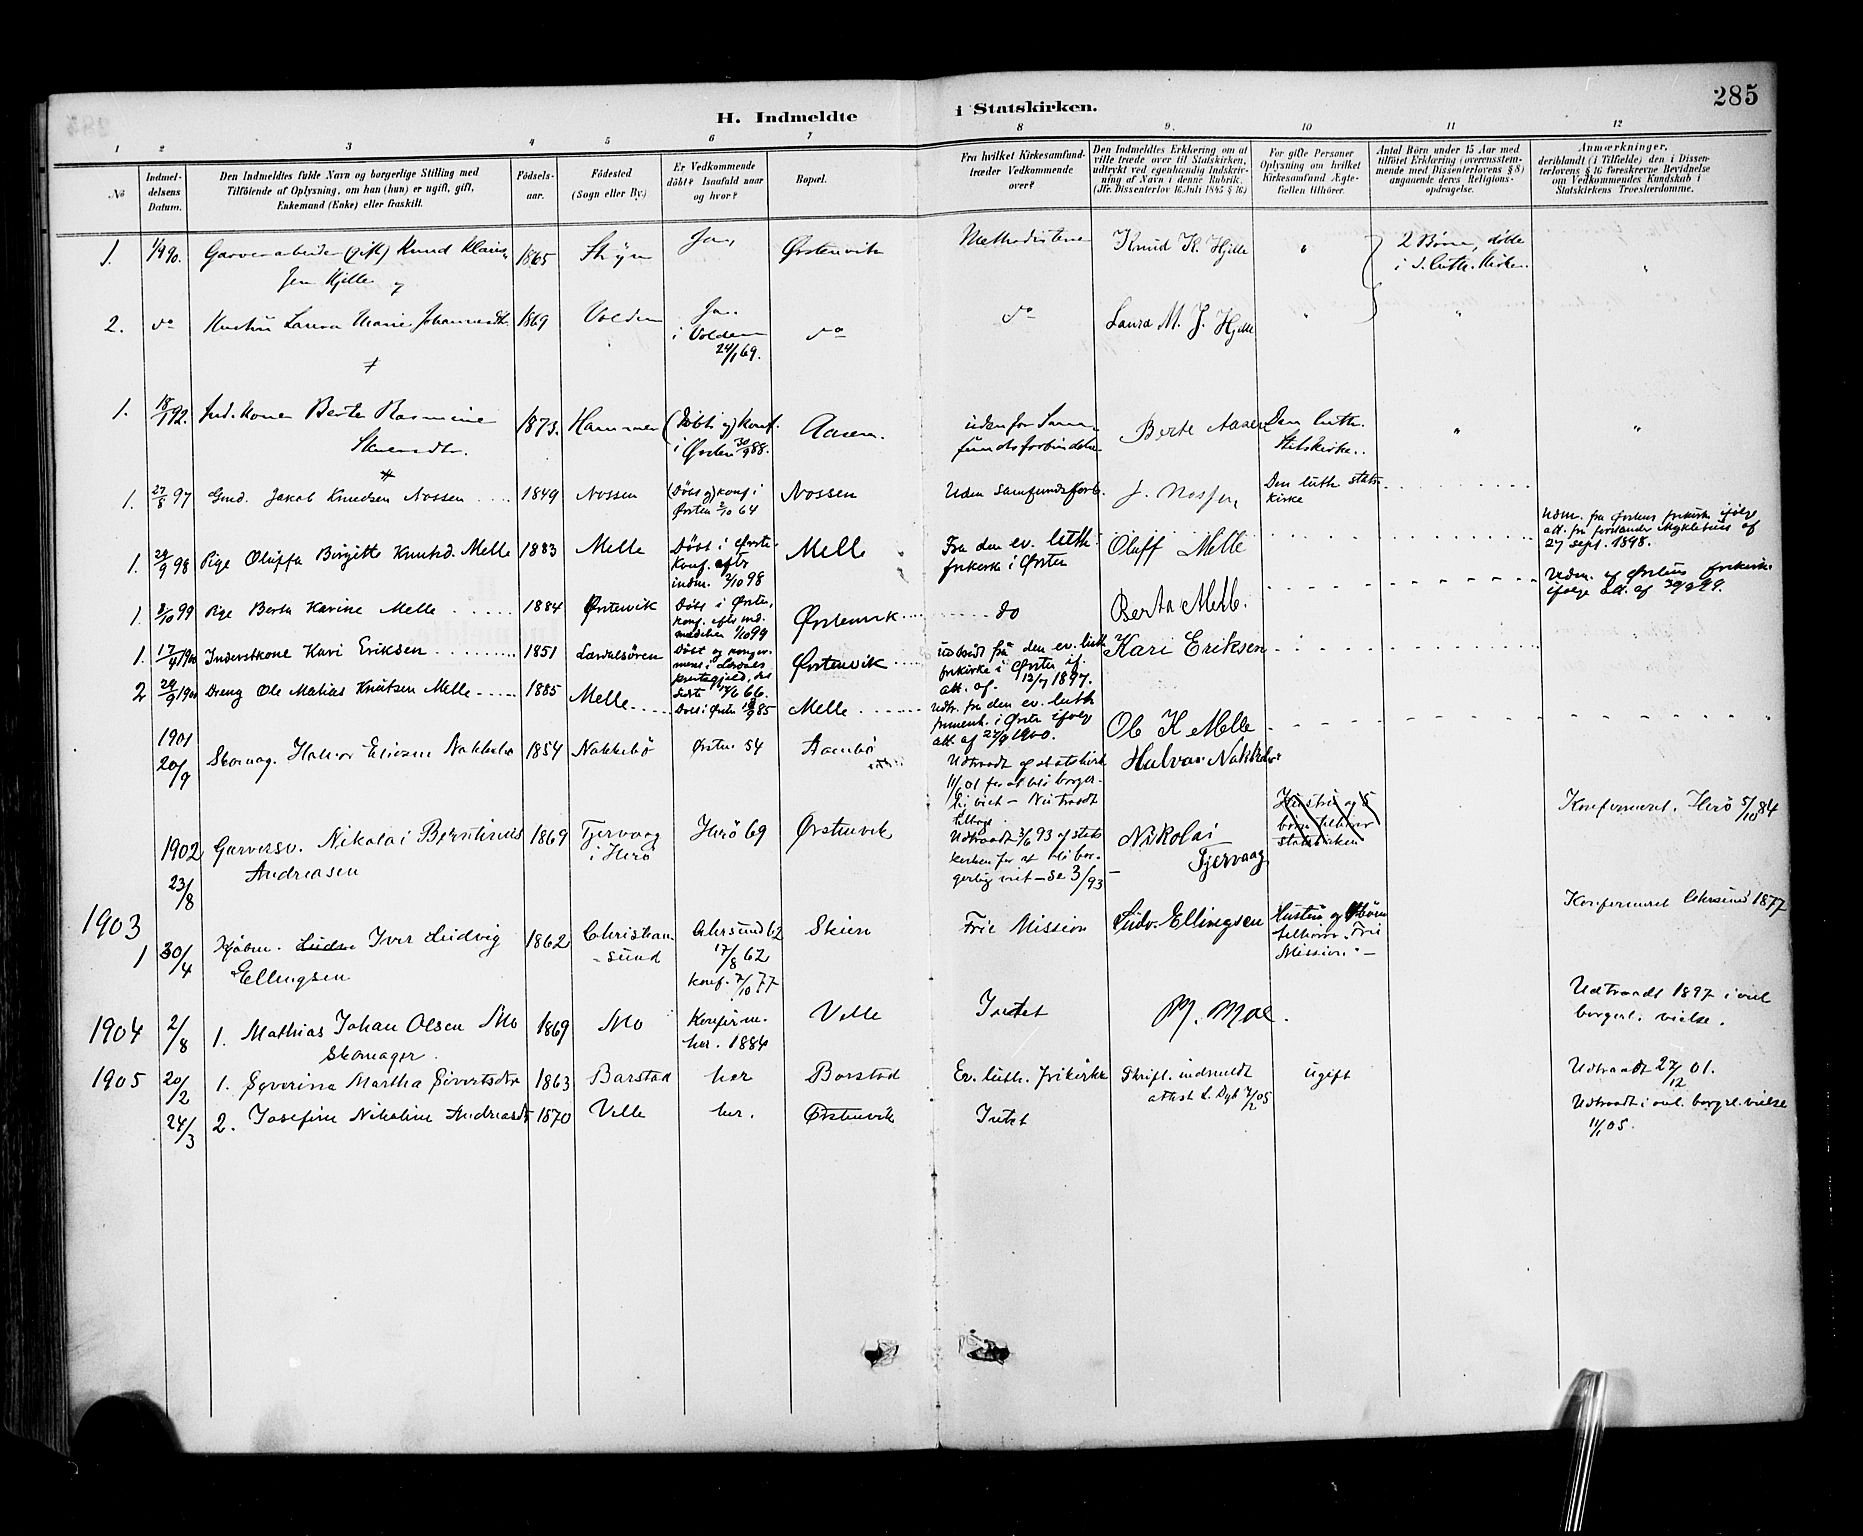 285
H. Indmeldte i Statskirken.
1 2 3 4 5 6 7 8 9. 10 11 12
No
Indmel-
delsens
Datum.
Den Indmeldtes fulde Navn og borgerlige Stilling med
Tilföiende af Oplysning, om han (hun) er ugift, gift,
Enkemand (Enke) eller fraskilt.
Födsels-
aar.
Födested
(Sogn eller By.)
Er Vedkommende
döbt? Isaafald naar
og hvor?
Bopæl.
Fra hvilket Kirkesamfund
træder Vedkommende
over?
Den Indmeldtes Erklæring om at
ville træde over til Statskirken,
udtrykt ved egenhændig Indskriv-
ning af Navn i denne Rubrik.
(Jfr. Dissenterlov 16 Juli 1845 § 16)
For gifte Personer
Oplysning om hvilket
Kirkesamfund Ægte-
fællen tilhörer.
Antal Börn under 15 Aar med
tilföiet Erklæring (overensstem-
mende med Dissenterlovens § 8)
angaaende deres Religions-
opdragelse.
Anmærkninger,
deriblandt (i Tilfælde) den i Dissen-
terlovens § 16 foreskrevne Bevidnelse
om Vedkommendes Kundskab i
Statskirkens Troeslærdomme.
1. 1/4 90. Garverarbeider (gift) Knud Klaus-
sen Hjelle og
1865 Stryn Ja, Ørstenvik Methodisterne Knud K. Hjelle " 2 Børn, døbte
i d. luth. Kirke. "
2. do Hustru Laura Marie Johannesdtr. 1869 Volden Ja.
i Volden
24/1 69.
do do Laura M. J. Hjelle " "
1. 18/1 92. Ind. Kone Berte Rasmine
1873. (Døbt og) Konf.
i Ørsten 30/9 88.
Aasen. uden for Sam-
fundsforbindelse Berte Aasen Den luth.
Statskirke. " "
1. 27/8 97 Gmd. Jakob Knudsen Nossen 1849 Nossen (Døbt og) konf i
Ørsten 2/10 64
Nossen Uden Samfundsforb. J. Nossen Den luth stats-
kirke
1. 29/9 98 Pige Oluffa Birgitte Knutsd. Melle 1883 Melle Døbt i Ørsten.
Konf. efter
indm. 2/10 98
Melle Fra den ev. luth.
frikirke i Ørsten Oluff Melle Udm. fra Ørstens frikirke ifølge
att. fra forstander Myklebust af
27 sept. 1898.
1. 2/10 99 Pige Berta Karine Melle 1884 Ørstenvik Døbt i Ørsten,
konf. efter ind-
meldelsen 1/10 99
Ørstenvik do Berta Melle. Udm. af Ørstens frikirke
ifølge att. af 30/9 99.
1. 17/4 1900 Inderstkone Kari Eriksen 1851 Lærdalsøren Døbt og konfir-
meret i Lærdals
præstegjeld, det
sidste 66.
Ørstenvik udtraadt fra den ev. luth
frikirke i Ørsten if.
att. af. 12/7 1897.
Kari Eriksen
2 29/9 1900 Dreng Ole Matias Knutsen Melle 1885 Melle Døbt i Ørsten 85 Melle Udtr. fra den ev. luth
frimenh. i Ørsten ifølge
att. af 27/9 1900.
Ole K Melle
1901
20/9 Skomag. Halvor Eliasen Nakkebø 1854 Nakkebø Ørsten 54 Udtraadt af statskirk
11/6 01 for at bli borger-
lig viet – Nu traadt
tilbage.
Halvar Nakkebø
1902
23/8 Garversv. Nikolai Berntinus
Andreasen
1869 Tjervaag
i Herø Herø 69 Ørstenvik Udtraadt 3/6 93 af stats
kirken for at bli bor-
gerlig viet – se 3/93 –
Nikolai
Tjervaag
Hustru og 5
børn tilhører
statskirken
Konfirmeret. Herø 5/10 84
1903
1 30/4 Kjøbm. Iver Ludvig
Ellingsen
1862 Christian-
sund Chrsund 62
17/8 62
konf. 7/10 77
Skien Frie Mission Ludv. Ellingsen Hustru og børn
tilhører. Frie
Mission. –
Konfirmeret Chrsund 1877
1904 2/8 1. Mathias Johan Olsen Mo
Skomager.
1869 Mo Konfirm.
her. 1884 Velle Intet M. Moe. Udtraadt 1897 i anl
borgerl. vielse.
1905 20/2 1. Syverina Martha Sivertsdtr 1863 Barstad her Barstad Ev. luth. frikirke Skriftl. indmeldt
attest 7/2 05
ugift Udtraadt 27/12 01.
24/3 2. Josefine Nikoline Andreasdtr 1870 Velle her. Ørstenvik Intet Udtraadt i anl. borgerl. vielse
11/1 05.